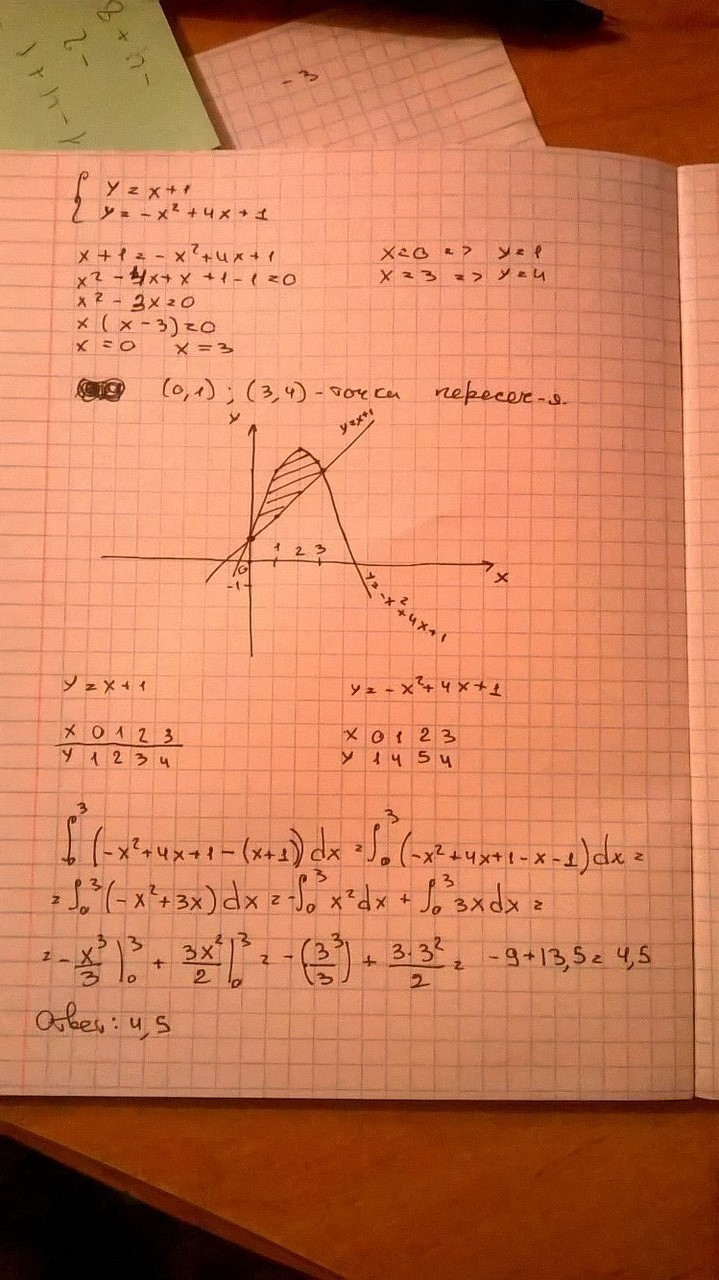 -3
{ y = x+1
y = -x² + 4x + 1
x + 1 = -x² + 4x + 1
x² - 4x + x + 1 - 1 = 0
x² - 3x = 0
x ( x - 3) = 0
x = 0 x = 3
x=0 => y=1
x=3 => y=4
(0,1) ; (3,4) - точки пересеч-я.
y
y=x+1
0 1 2 3
-1
x
y=-x²+4x+1
y = x + 1
x 0 1 2 3
y 1 2 3 4
y = -x² + 4x + 1
x 0 1 2 3
y 1 4 5 4
∫₀³ (-x²+4x+1-(x+1)) dx = ∫₀³ (-x²+4x+1-x-1) dx =
= ∫₀³ (-x²+3x) dx = -∫₀³ x² dx + ∫₀³ 3x dx =
= - x³/3 |₀³ + 3x²/2 |₀³ = -(3³/3) + 3·3²/2 = -9+13,5 = 4,5
Ответ: 4,5